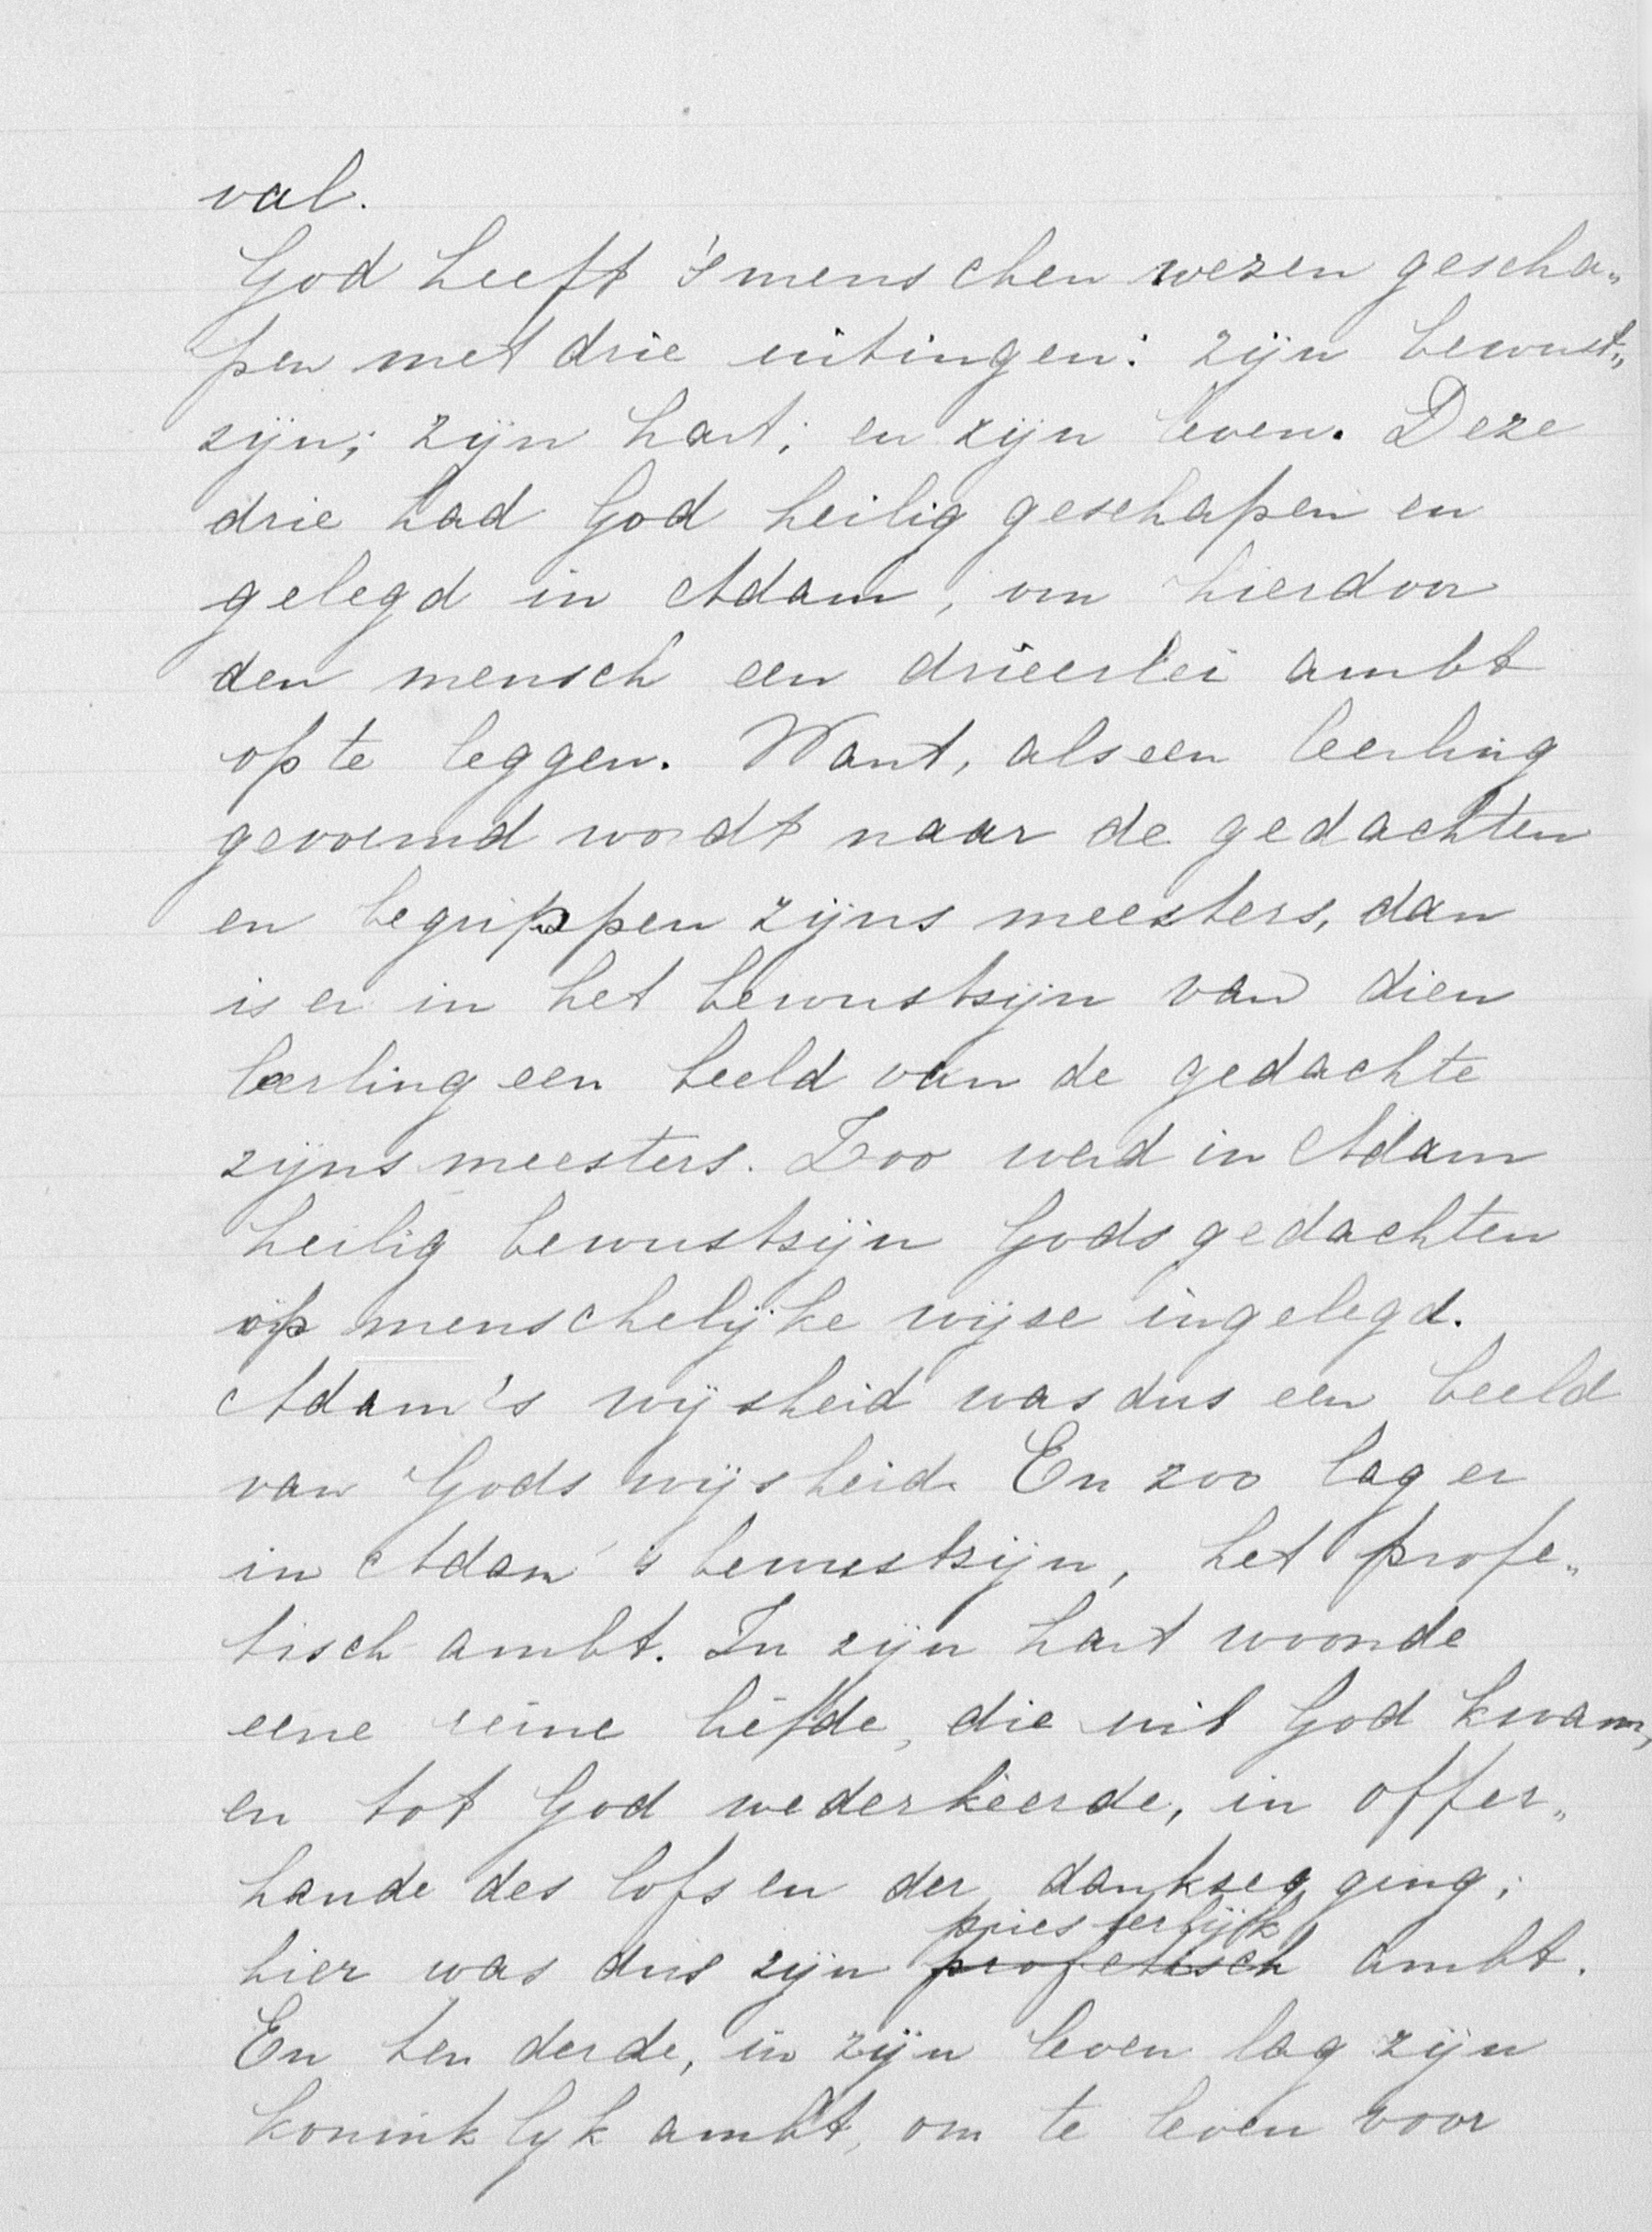 val.
God heeft 's menschen wezen gescha„
pen met drie uitingen: zijn bewust„
zijn; zijn hart; en zijn leven. Deze
drie had God heilig geschapen en
gelegd in Adam, om hierdoor
den mensch een drieerlei ambt
op te leggen. Want, als een leerling
gevormd wordt naar de gedachten
en begrippen zijns meesters, dan
is er in het bewustzijn van dien
leerling een beeld van de gedachte
zijns meesters. Zoo werd in Adam
heilig bewustzijn Gods gedachten
op menschelijke wijze ingelegd.
Adam's wijsheid was dus een beeld
van Gods wijsheid. En zoo lag er
in Adam's bewustzijn, het profe„
tisch ambt. In zijn hart woonde
eene reine liefde, die uit God kwam,
en tot God wederkeerde, in offer„
hande des lofs en der dankzegging;
priesterlijk
hier was dus zijn profetisch ambt.
En ten derde, in zijn leven lag zijn
koninklyk ambt, om te leven voor